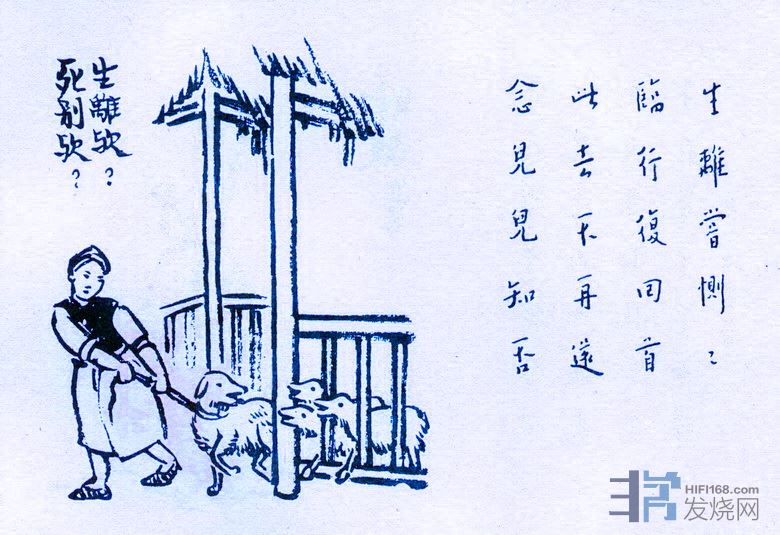 生離歟？
死别歟？
生離嘗惻〻
臨行復回首
此去不再還
念兒兒知否
HIFI168.com
发烧网